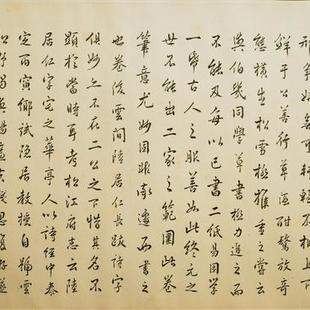 鮮于公善行草酒酣驁放奇
態橫生松雪極推重之嘗云
與伯幾同學草書極力追之而
不能及每以己書二低易困学
一帋古人之服善如此終元之
世不能出二家之範圍此卷
筆意尤妙因而書之
也卷後雲間陸居仁長跋詩字
俱妙亦不在二公之下惜其名不
顯於當時耳考松江府志云陸
居仁字宅之華亭人以詩經中泰
定丙寅鄉試隱居教授自號雲
松野